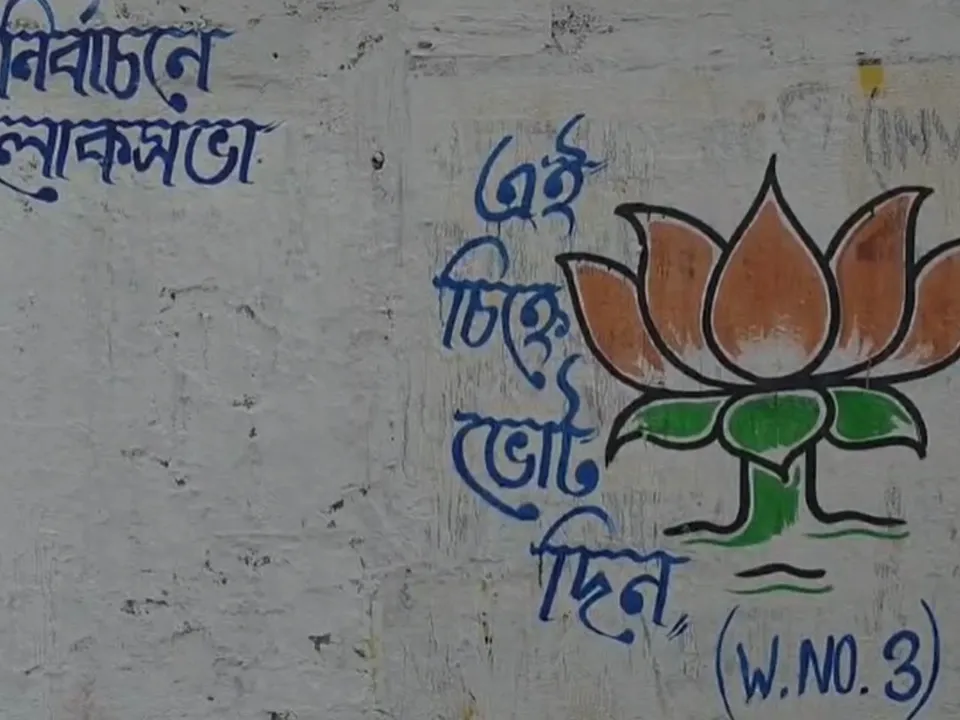 নির্বাচনে
লোকসভা
এই
চিহ্নে
ভোট
দিন,,
(W.NO. 3)